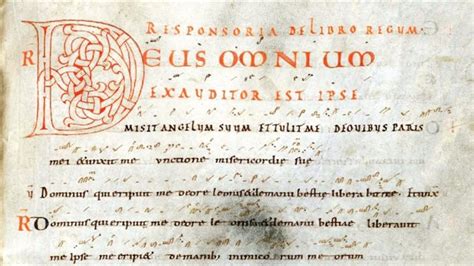 RESPONSORIA DE LIBRO REGUM
R DEUS OMNIUM
EXAUDITOR EST IPSE
MISIT ANGELUM SUUM ET TULIT ME DE OVIBUS PATRIS
mei & unxit me unctione misericordie sue
V Dominus qui eripuit me de ore leonis & de manu bestie liberavit me. Et unx
R Dominus qui eripuit me de ore leonis & de manu bestiae liberavit
me ipse me eripi& de manibus inimicorum meorum